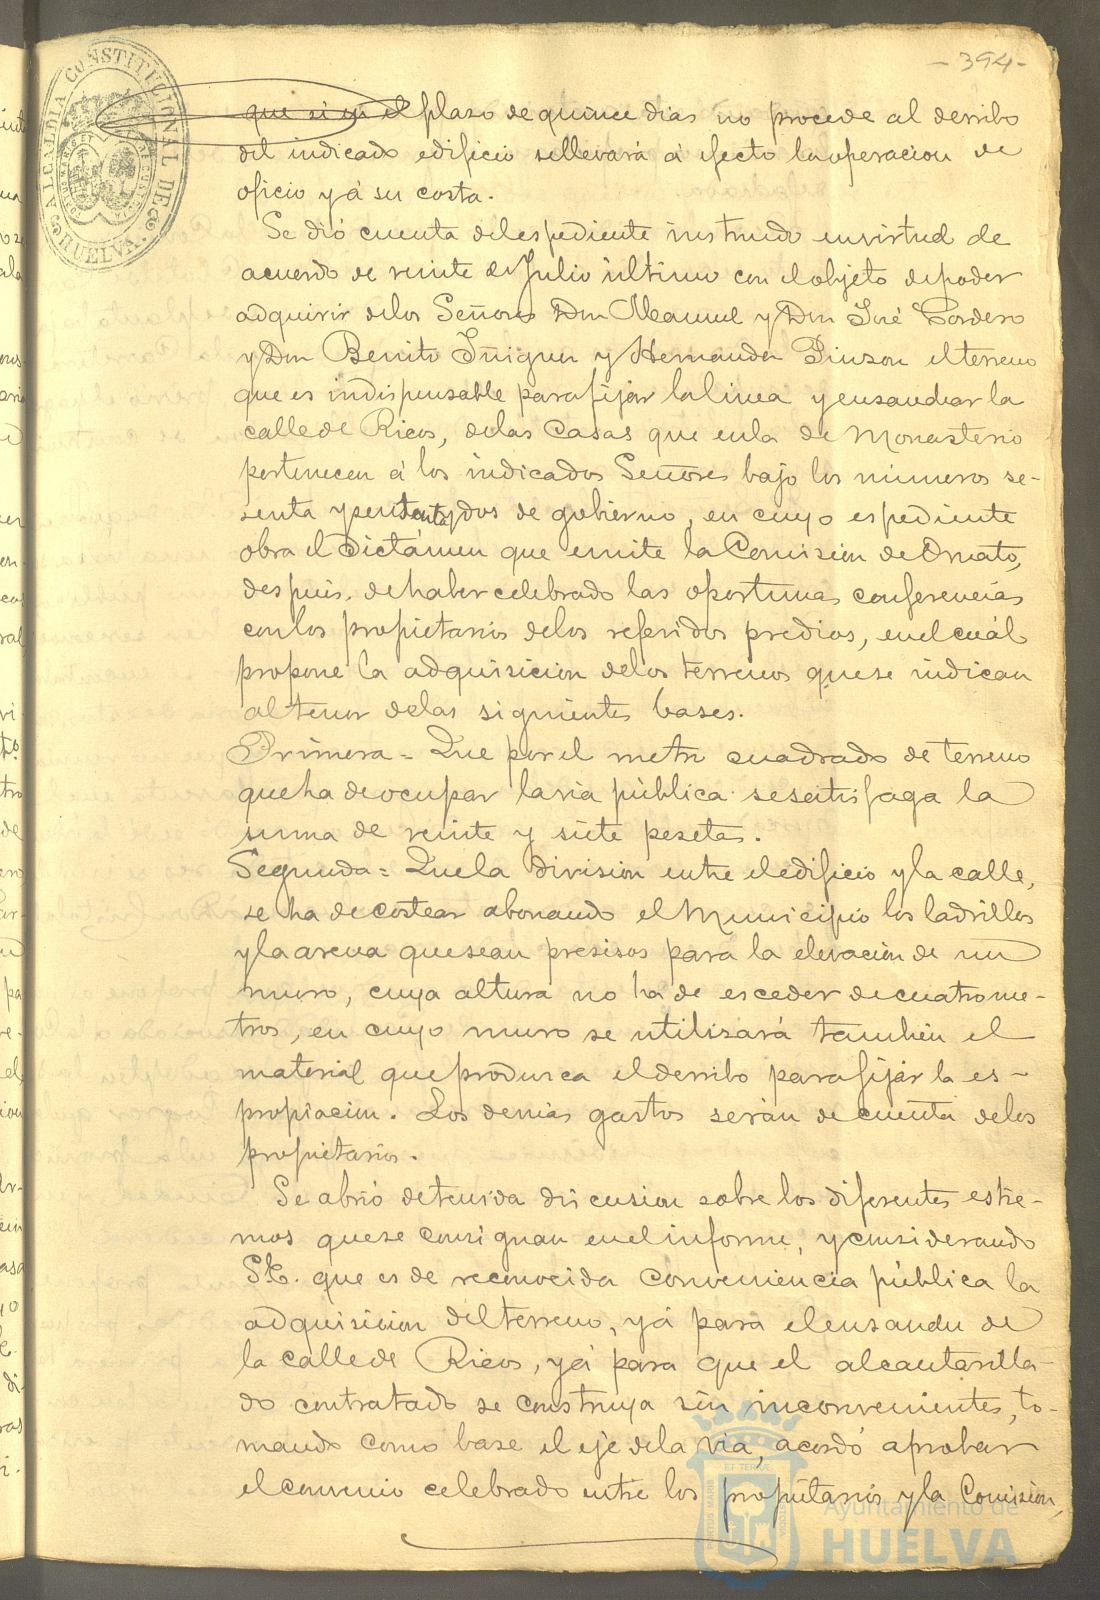 - 394 -
ALCALDIA CONSTITUCIONAL DE HUELVA.
que si en el plazo de quince dias no procede al derribo
del indicado edificio se llevará á efecto la operacion de
oficio y á su costa.
Se dió cuenta del espediente instruido en virtud de
acuerdo de veinte de Julio último con el objeto de poder
adquirir de los Señores Don Manuel y Don José Cordero
y Don Benito Iñiguez y Hernandez Pinzon el terreno
que es indispensable para fijar la linea y ensanchar la
calle de Ricos, de las Casas que en la de Monasterio
pertenecen á los indicados Señores bajo los números se-
senta y sesenta y dos de gobierno, en cuyo espediente
obra el Dictámen que emite la Comisión de Ornato,
después de haber celebrado las oportunas conferencias
con los propietarios de los referidos predios, en el cuál
propone la adquisicion de los terrenos que se indican
al tenor de las siguientes bases.
Primera = Que por el metro cuadrado de terreno
que ha de ocupar la via pública se satisfaga la
suma de veinte y siete pesetas.
Segunda = Que la division entre el edificio y la calle,
se ha de costear abonando el Municipio los ladrillos
y la arena que sean presisos para la elevación de un
muro, cuya altura no ha de esceder de cuatro me-
tros, en cuyo muro se utilizará también el
material que produzca el derribo para fijar la es-
propiacion. Los demás gastos serán de cuenta de los
propietarios.
Se abrió detenida discusion sobre los diferentes estre-
mos que se consignan en el informe, y considerando
S.E. que es de reconocida conveniencia pública la
adquisicion del terreno, yá para el ensanche de
la calle de Ricos, yá para que el alcantarilla-
do contratado se construya sin inconvenientes, to-
mando como base el eje de la via, acordó aprobar
el convenio celebrado entre los propietarios y la Comision,
Ayuntamiento de
HUELVA